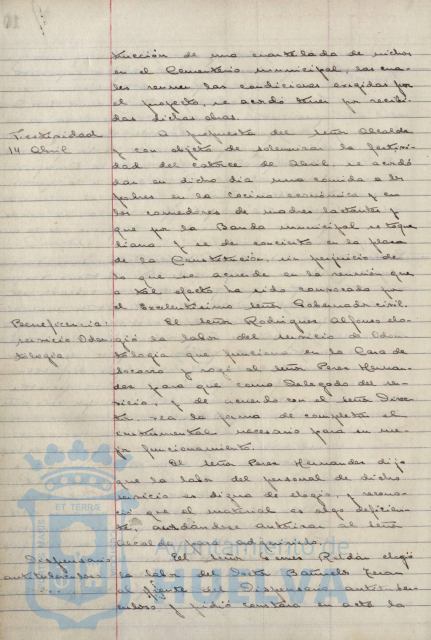 trucción de una cuartelada de nichos
en el Cementerio municipal, las cua-
les reunen las condiciones exigidas por
el proyecto, se acordó tener por recibi-
das dichas obras.
Festividad
14 Abril
A propuesta del Señor Alcalde
y con objeto de solemnizar la festivi-
dad del catorce de Abril se acordó
dar en dicho día una comida a los
pobres en la Cocina económica y en
los comedores de madres lactantes y
que por la Banda municipal se toque
diana y se de concierto en la plaza
de la Constitución, sin perjuicio de
lo que se acuerde en la reunión que
a tal efecto ha sido convocada por
el Excelentísimo Señor Gobernador civil.
Beneficencia:
servicio Odon-
tología
El Señor Rodríguez Alfonso elo-
gió la labor del servicio de Odon-
tología que funciona en la Casa de
Socorro y rogó al Señor Perez Hernan-
dez para que como Delegado del ser-
vicio, y de acuerdo con el Señor Direc-
tor vea la forma de completar el
instrumental necesario para su me-
jor funcionamiento.
El Señor Perez Hernandez dijo
que la labor del personal de dicho
servicio es digna de elogio, y recono-
ció que el material es algo deficien-
te, acordándose autorizar al Señor
Alcalde para adquirirlo.
Dispensario
antituberculoso
El Señor Roldán elogió
la labor del Doctor Bañuelo
al frente del Dispensario antituber-
culoso y pidió constara en acta la
ET TERRÆ
Ayuntamiento de
HUELVA